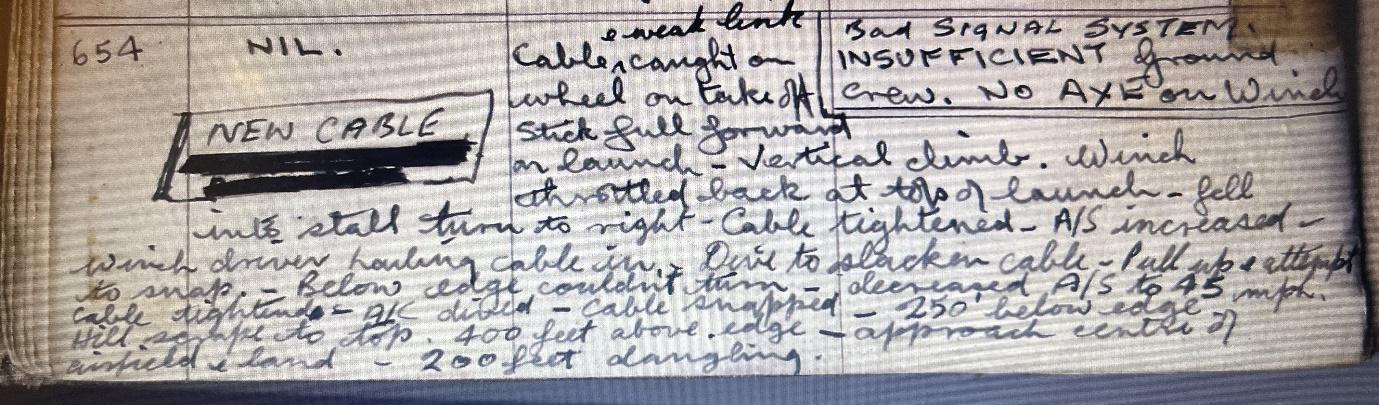 654 NIL.
& weak link
Cable ^ caught on
wheel on take off
Stick full forward
on launch - Vertical climb. Winch
throttled back at top of launch - fell
into stall turn to right - Cable tightened - A/S increased -
winch driver hauling cable in. - Dive to slacken cable - Pull up & attempt
to snap. - Below edge couldn't turn - decreased A/S to 45 mph.
cable tightened - A/C dived - Cable snapped - 250' below edge
Hill scrape to top. 400 feet above edge - approach centre of
airfield & land - 200 feet dangling.
Bad SIGNAL SYSTEM.
INSUFFICIENT ground
crew. NO AXE on Winch
NEW CABLE